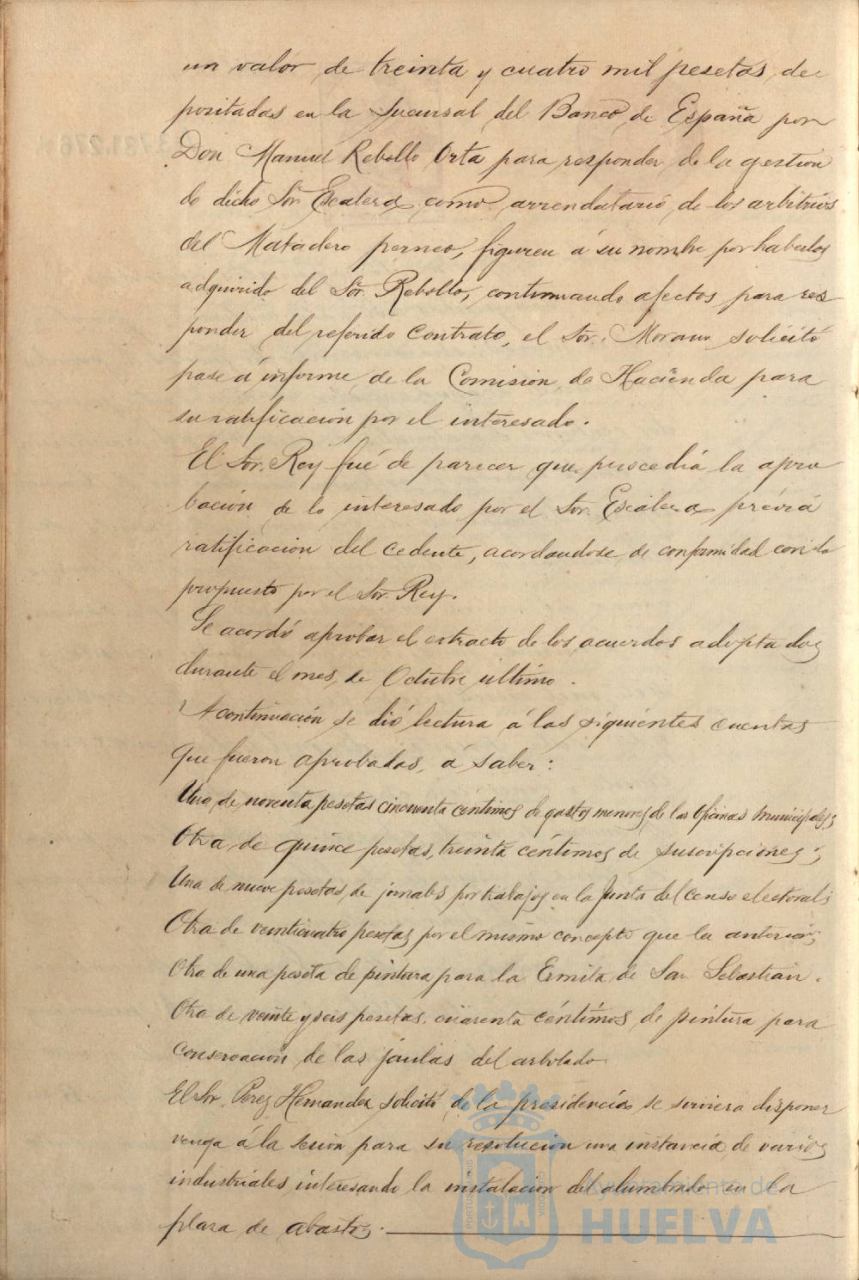 un valor de treinta y cuatro mil pesetas, de
positadas en la Sucursal del Banco de España por
Don Manuel Rebollo Orta para responder de la gestion
de dicho Sor. Escalera como arrendatario de los arbitrios
del Matadero perneo, figuren á su nombre por haberlos
adquirido del Sor. Rebollo, continuando afectos para res
ponder del referido contrato, el Sor. Moreno solicitó
pase á informe de la Comisión de Hacienda para
su ratificación por el interesado.
El Sor. Rey fué de parecer que procedía la apro
bación de lo interesado por el Sor. Escalera prévia
ratificacion del cedente, acordandose de conformidad con lo
propuesto por el Sor. Rey.
Se acordó aprobar el extracto de los acuerdos adoptados
durante el mes de Octubre último.
A continuación se dió lectura á las siguientes cuentas
que fueron aprobadas, á saber:
Una de noventa pesetas cincuenta céntimos de gastos menores de las Oficinas municipales;
Otra de quince pesetas, treinta céntimos de suscripciones;
Una de nueve pesetas, de jornales por trabajos en la Junta del censo electoral;
Otra de veinticuatro pesetas por el mismo concepto que la anterior;
Otra de una peseta de pintura para la Ermita de San Sebastian.
Otra de veinte y seis pesetas, cuarenta céntimos, de pintura para
conservación de las jáulas del arbolado
El Sor. Perez Hernandez, solicitó de la presidencia se sirviera disponer
venga á la sesión para su resolucion una instancia de varios
industriales, interesando la instalacion del alumbrado en la
plaza de abastos.
Ayuntamiento de
HUELVA